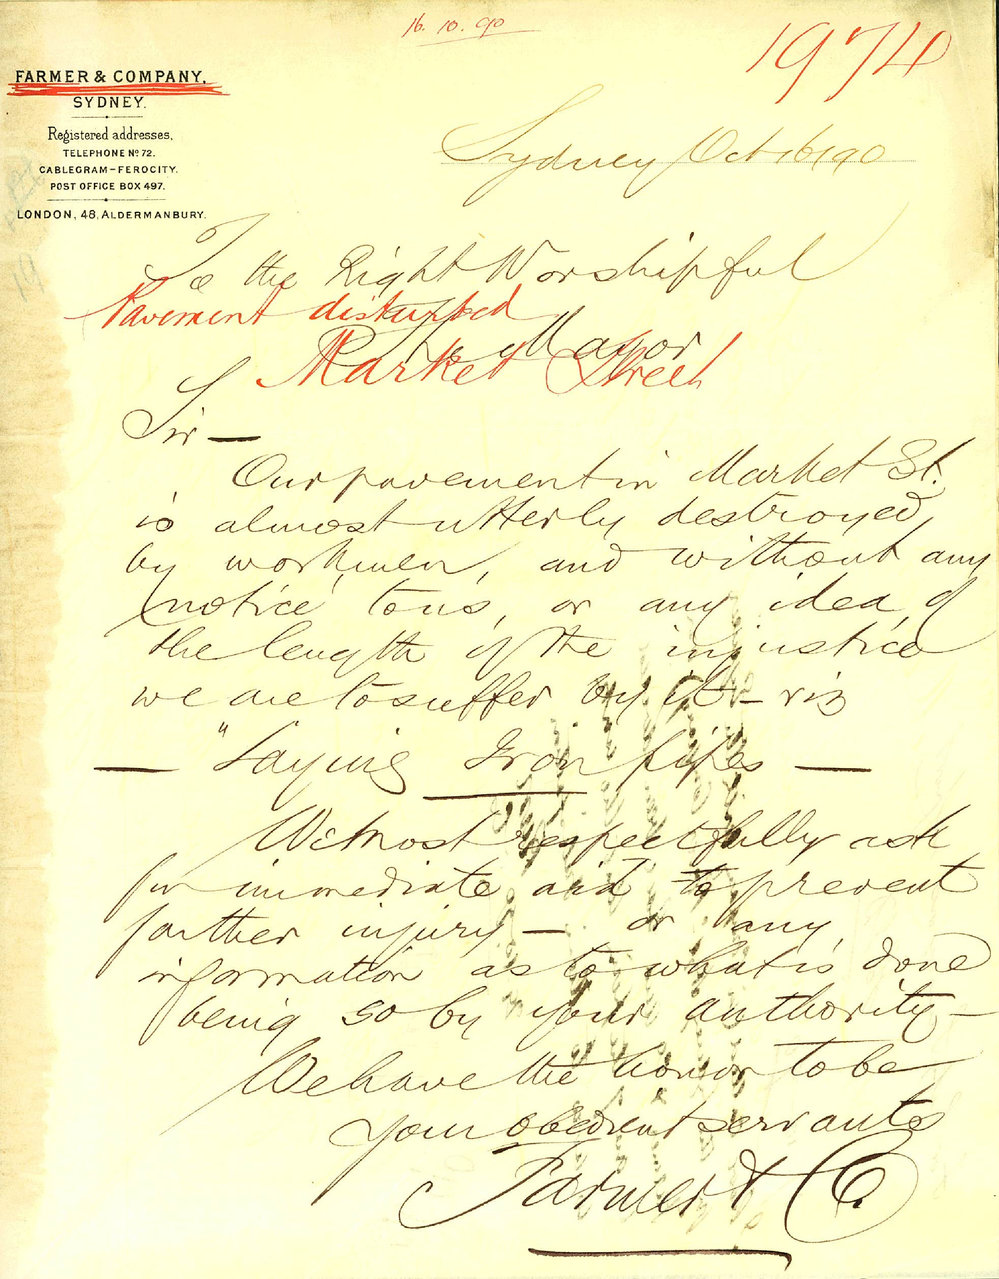 16. 10. 90
1974
FARMER & COMPANY.
SYDNEY.
Registered addresses.
TELEPHONE No 72.
CABLEGRAM-FEROCITY.
POST OFFICE BOX 497.
LONDON, 48, ALDERMANBURY.
Sydney Oct 16/90
To the Right Worshipful
Pavement disturbed
The Mayor
Market Street
Sir —
Our pavement in Market St.
is almost utterly destroyed,
by workmen, and without any
notice to us, or any idea of
the length of the injustice
we are to suffer by it — viz
— "Laying Iron pipes —
We most respectfully ask
for immediate aid to prevent
further injury — or any
information as to what is done
being so by your authority —
We have the honor to be
Your obedient servants
Farmer & Co.